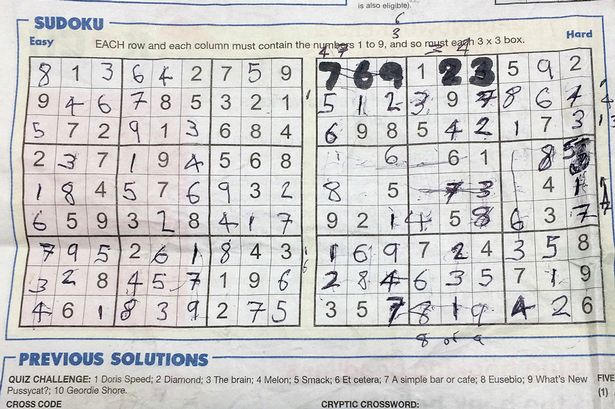 is also eligible).
6
3
SUDOKU
Easy
EACH row and each column must contain the numbers 1 to 9, and so must each 3 x 3 box.
Hard
8 1 3 6 4 2 7 5 9
9 4 6 7 8 5 3 2 1
5 7 2 9 1 3 6 8 4
2 3 7 1 9 4 5 6 8
1 8 4 5 7 6 9 3 2
6 5 9 3 2 8 4 1 7
7 9 5 2 6 1 8 4 3
3 2 8 4 5 7 1 9 6
4 6 1 8 3 9 2 7 5
7 6 9 1 2 3 5 9 2
5 1 2 3 9 7 8 6 4
6 9 8 5 4 2 1 7 3
6 6 1 8
8 5 7 3 4 1
9 2 1 4 5 8 6 3 7
1 6 9 7 2 4 3 5 8
2 8 4 6 3 5 7 1 9
3 5 7 8 1 9 4 2 6
8 or 9
PREVIOUS SOLUTIONS
QUIZ CHALLENGE: 1 Doris Speed; 2 Diamond; 3 The brain; 4 Melon; 5 Smack; 6 Et cetera; 7 A simple bar or cafe; 8 Eusebio; 9 What's New
Pussycat?; 10 Geordie Shore.
FIVE
(1)
CROSS CODE
CRYPTIC CROSSWORD: